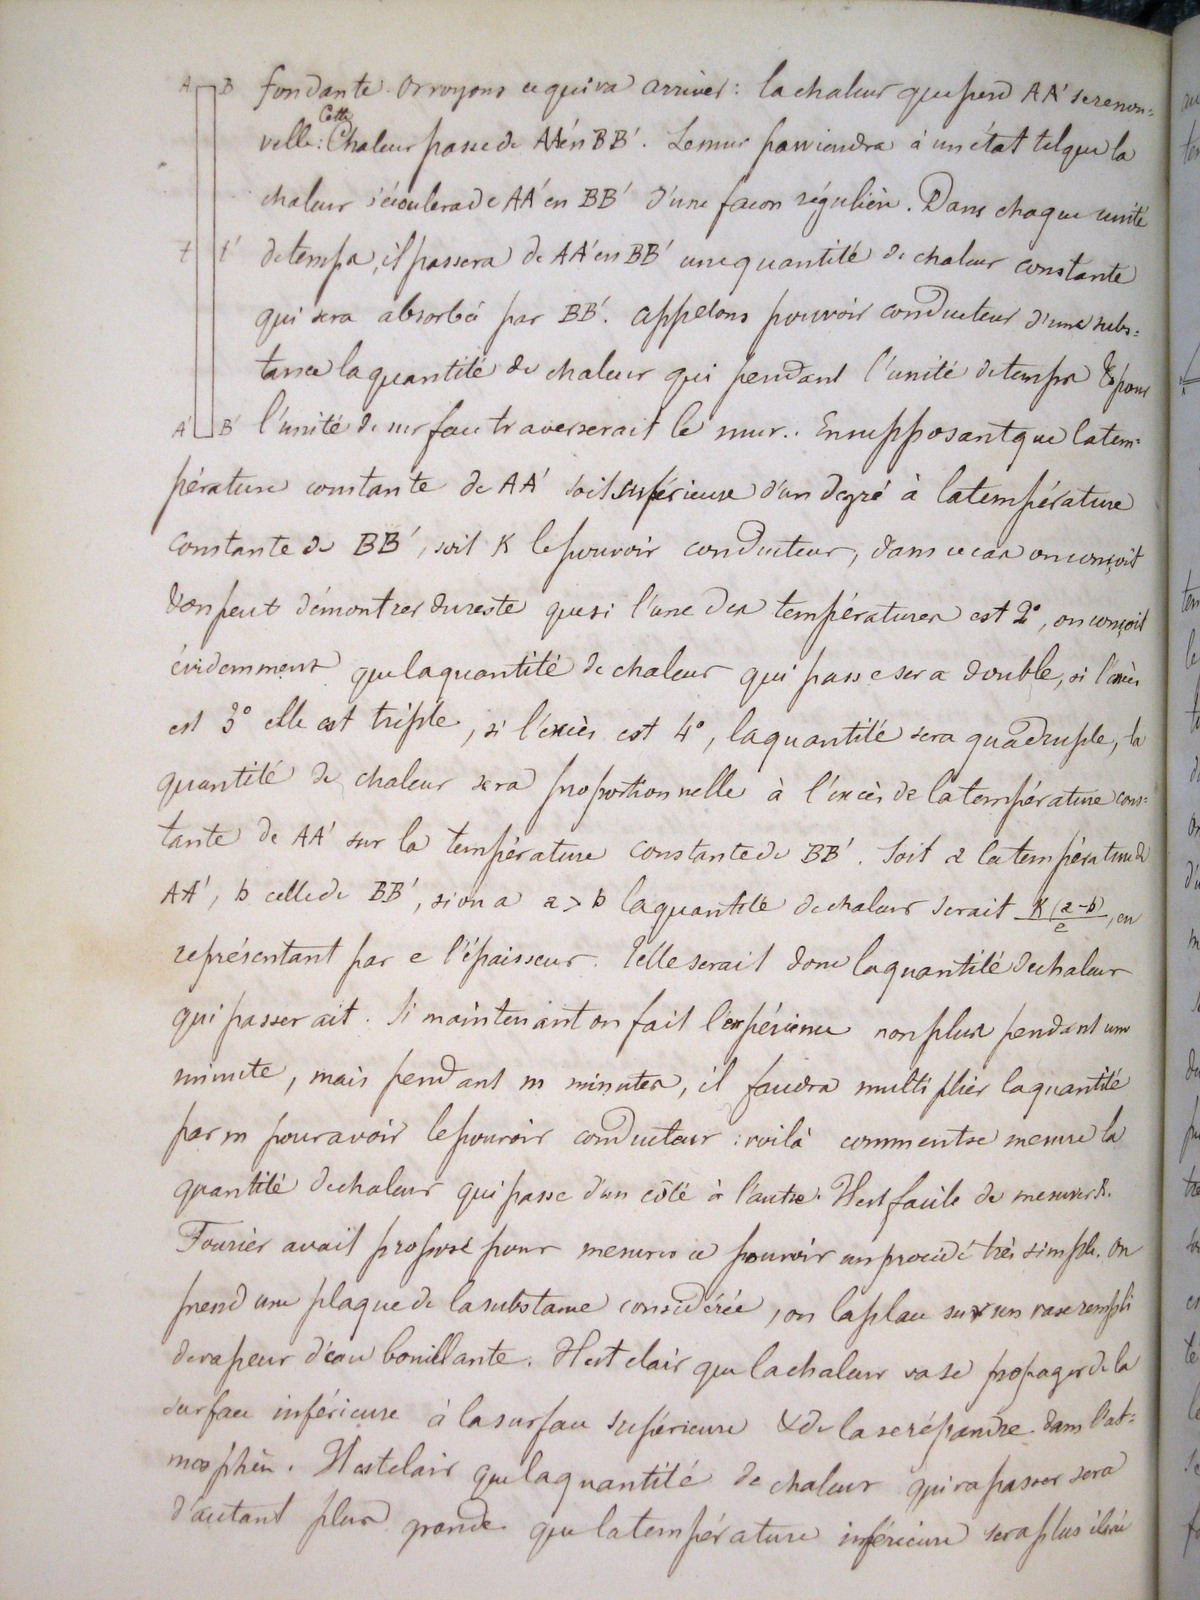 A B fondante. Or voyons ce qui va arriver : la chaleur que perd AA' se renou=
velle : Cette Chaleur passe de AA' en BB'. Le mur parviendra à un état tel que la
chaleur s'écoulera de AA' en BB' d'une façon régulière. Dans chaque unité
t t' de temps, il passera de AA' en BB' une quantité de chaleur constante
qui sera absorbée par BB'. appelons pouvoir conducteur d'une subs=
tance la quantité de chaleur qui pendant l'unité de temps & pour
A' B' l'unité de surface traverserait le mur.. En supposant que la tem=
pérature constante de AA' soit supérieure d'un degré à la température
constante de BB', soit K le pouvoir conducteur, dans ce cas on conçoit
& on peut démontrer du reste que si l'une des températures est 2°, on conçoit
évidemment que la quantité de chaleur qui passe sera double, si l'excès
est 3° elle est triple, si l'excès est 4°, la quantité sera quadruple, la
quantité de chaleur sera proportionnelle à l'excès de la température cons=
tante de AA' sur la température constante de BB'. Soit a la température de
AA', b celle de BB', si on a a > b la quantité de chaleur serait K(a-b)/e, en
représentant par e l'épaisseur. Telle serait donc la quantité de chaleur
qui passerait. Si maintenant on fait l'expérience non plus pendant une
minute, mais pendant m minutes, il faudra multiplier la quantité
par m pour avoir le pouvoir conducteur : voilà comment se mesure la
quantité de chaleur qui passe d'un côté à l'autre. Il est facile de mesurer K.
Fourier avait proposé pour mesurer ce pouvoir un procédé très simple. On
prend une plaque de la substance considérée, on la place sur un vase rempli
de vapeur d'eau bouillante. Il est clair que la chaleur va se propager de la
surface inférieure à la surface supérieure & de la se répandre dans l'at=
mosphère. Il est clair que la quantité de chaleur qui va passer sera
d'autant plus grande que la température inférieure sera plus élevée